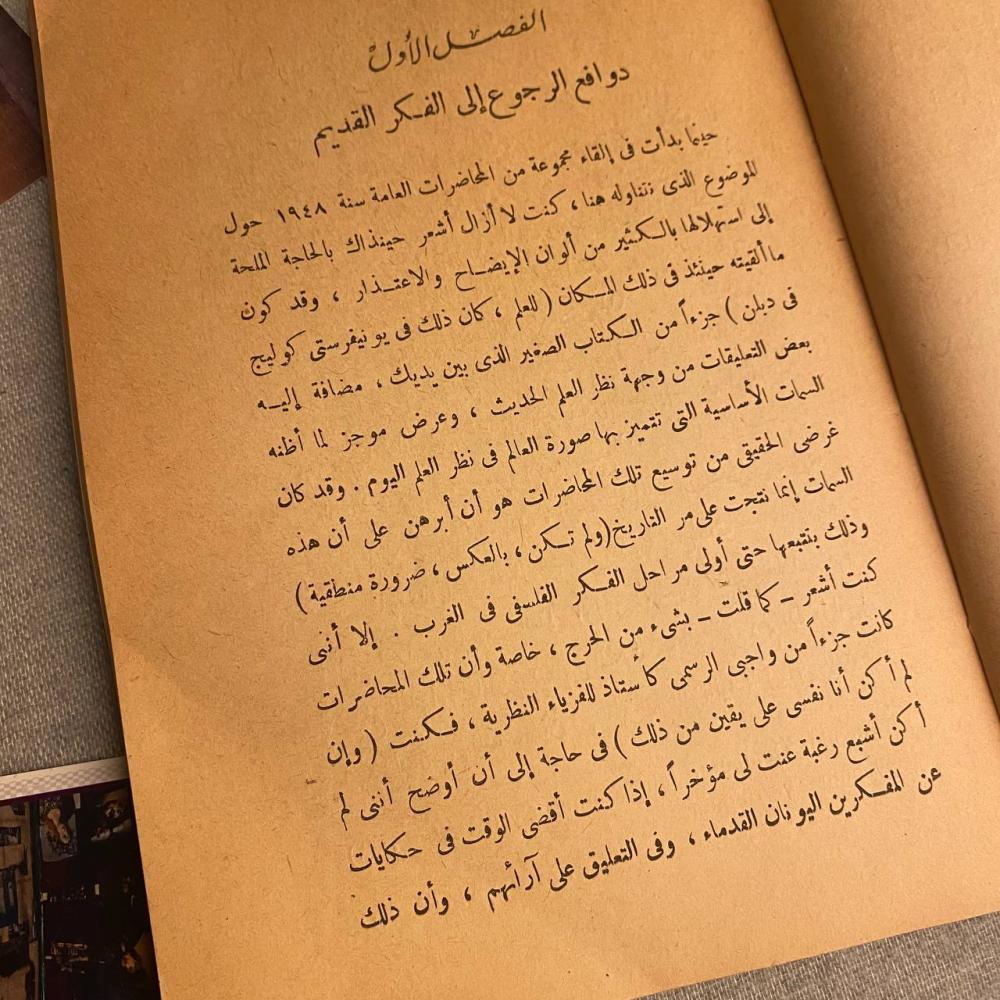 الفصل الأول
دوافع الرجوع إلى الفكر القديم
حينما بدأت فى إلقاء مجموعة من المحاضرات العامة سنة ١٩٤٨ حول
الموضوع الذى نتناوله هنا ، كنت لا أزال أشعر حينذاك بالحاجة الملحة
إلى استهلالها بالكثير من ألوان الإيضاح والاعتذار ، وقد كون
ما ألقيته حينئذ فى ذلك المكان ( للعلم ، كان ذلك فى يونيفرستى كوليج
فى دبلن ) جزءاً من الكتاب الصغير الذى بين يديك ، مضافة إليه
بعض التعليقات من وجهة نظر العلم الحديث ، وعرض موجز لما أظنه
السمات الأساسية التى تتميز بها صورة العالم فى نظر العلم اليوم . وقد كان
غرضى الحقيقى من توسيع تلك المحاضرات هو أن أبرهن على أن هذه
السمات إنما نتجت على مر التاريخ (ولم تكن ، بالعكس ، ضرورة منطقية )
وذلك بتتبعها حتى أولى مراحل الفكر الفلسفى فى الغرب . إلا أننى
كنت أشعر – كما قلت – بشىء من الحرج ، خاصة وأن تلك المحاضرات
كانت جزءاً من واجبى الرسمى كأستاذ للفزياء النظرية ، فكنت ( وإن
لم أكن أنا نفسى على يقين من ذلك ) فى حاجة إلى أن أوضح أننى لم
أكن أشبع رغبة عنت لى مؤخراً ، إذا كنت أقضى الوقت فى حكايات
عن المفكرين اليونان القدماء ، وفى التعليق على آرائهم ، وأن ذلك